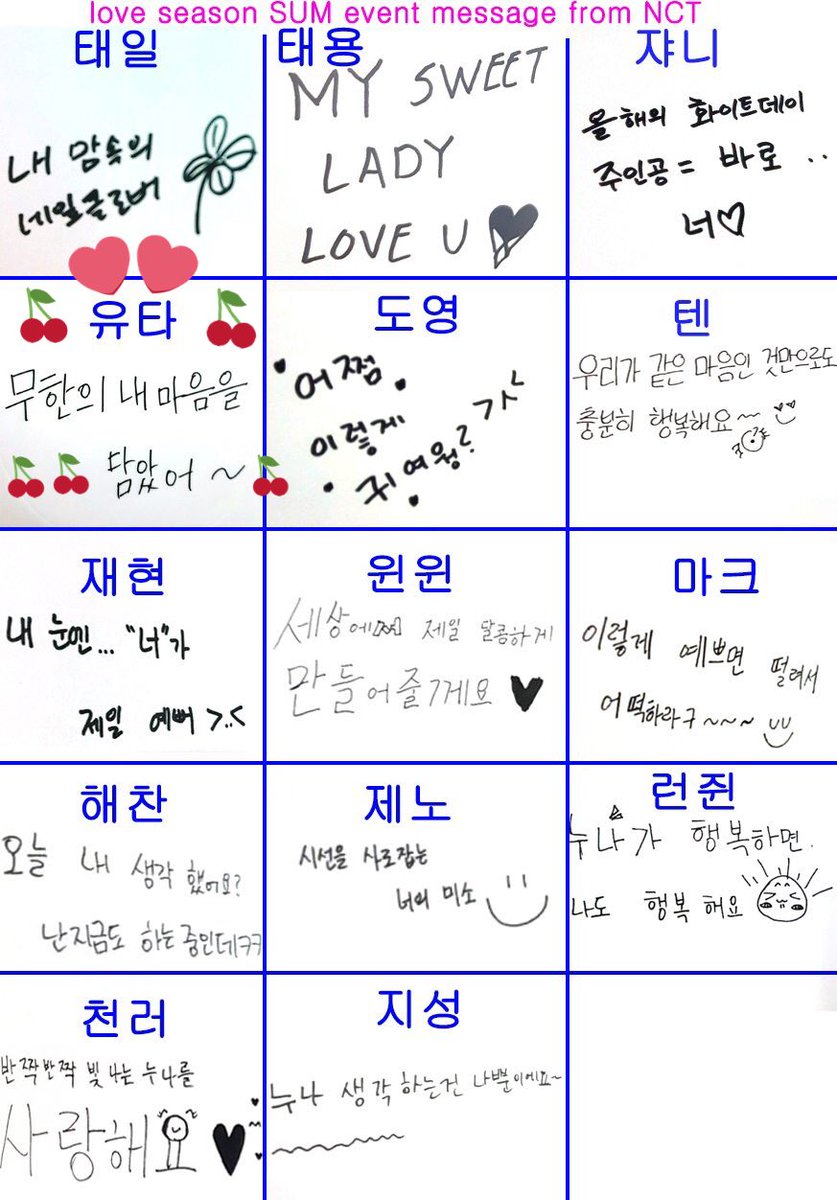 love season SUM event message from NCT
태일
내 맘속의
네잎클로버
태용
MY SWEET
LADY
LOVE U
쟈니
올해의 화이트데이
주인공 = 바로 ..
너♡
유타
무한의 내 마음을
담았어 ~
도영
어쩜
이렇게
귀여웡? ㄱㅅ
텐
우리가 같은 마음인 것만으로도
충분히 행복해요~
재현
내 눈엔... "너"가
제일 예뻐 >..<
윈윈
세상에서 제일 달콤하게
만들어줄게요 ♥
마크
이렇게 예쁘면 떨려서
어떡하라구~~~
해찬
오늘 내 생각 했어요?
난 지금도 하는 중인데ㅋㅋ
제노
시선을 사로잡는
너의 미소
런쥔
누나가 행복하면.
나도 행복해요
천러
반짝반짝 빛나는 누나를
사랑해요 ♥
지성
누나 생각하는건 나뿐이에요~